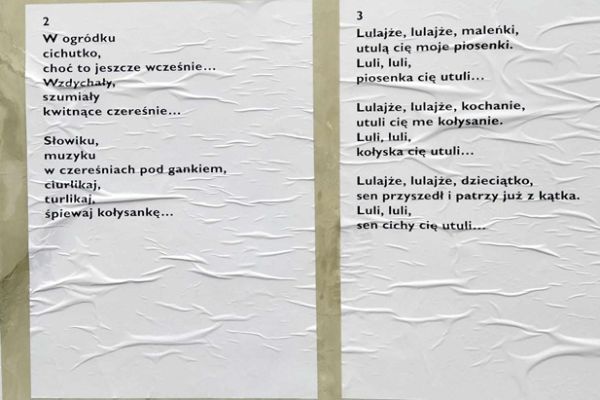 2
W ogródku
cichutko,
choć to jeszcze wcześnie...
Wzdychały,
szumiały
kwitnące czereśnie...
Słowiku,
muzyku
w czereśniach pod gankiem,
ciurlikaj,
turlikaj,
śpiewaj kołysankę...
3
Lulajże, lulajże, maleńki,
utulą cię moje piosenki.
Luli, luli,
piosenka cię utuli...
Lulajże, lulajże, kochanie,
utuli cię me kołysanie.
Luli, luli,
kołyska cię utuli...
Lulajże, lulajże, dzieciątko,
sen przyszedł i patrzy już z kątka.
Luli, luli,
sen cichy cię utuli...